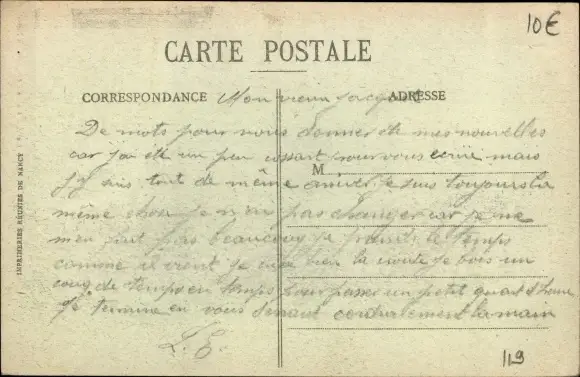 10€
CARTE POSTALE
CORRESPONDANCE
ADRESSE
Mon vieux Jacques
De mots pour vous donner de mes nouvelles
car j'ai été un peu pour vous écrire mais
j'y suis tout de même arriver je suis toujours la
même chose je n'ai pas changer car je ne
m'en fait pas beaucoup je prends le temps
comme il vient je bien la je bois un
coup de temps en temps pour passer un petit quart d'heure
Je termine en vous serrant cordialement la main
L. E.
M
IMPRIMERIES RÉUNIES DE NANCY
119